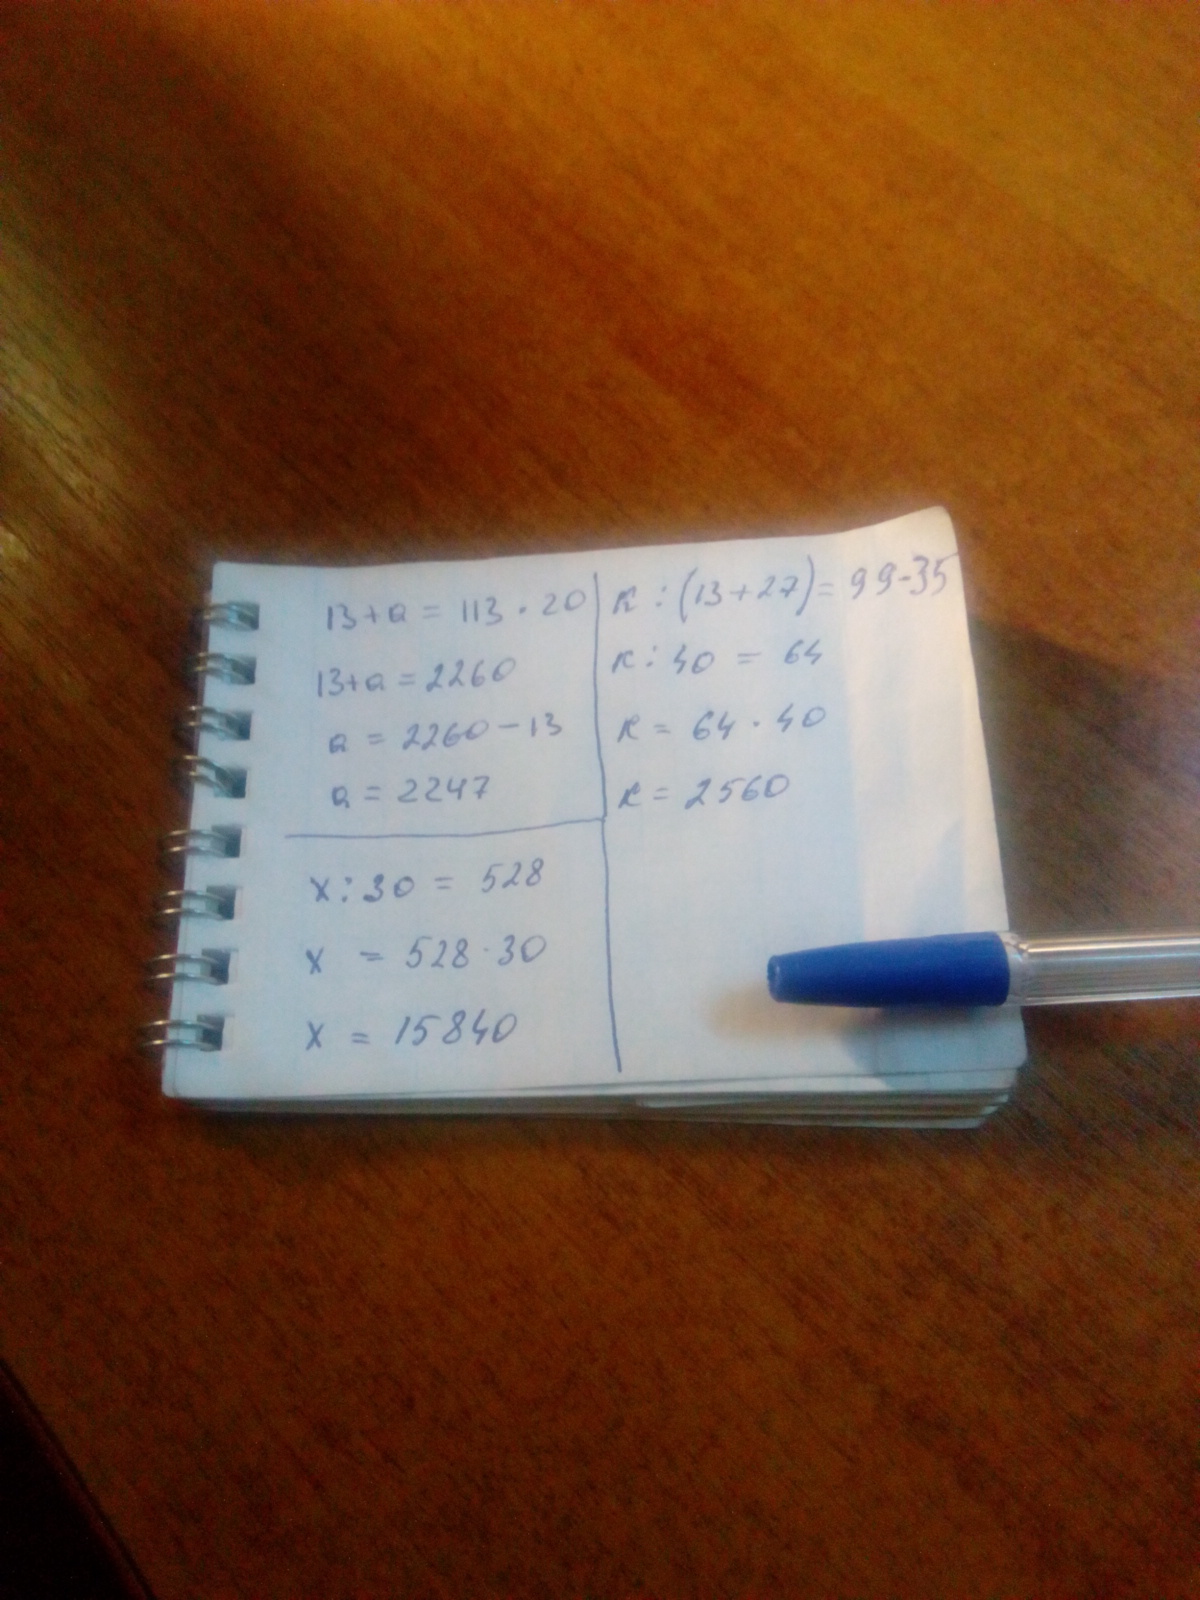 13+a = 113 · 20
13+a = 2260
a = 2260 - 13
a = 2247
x : 30 = 528
x = 528 · 30
x = 15840
к : (13+27) = 99-35
к : 40 = 64
к = 64 · 40
к = 2560